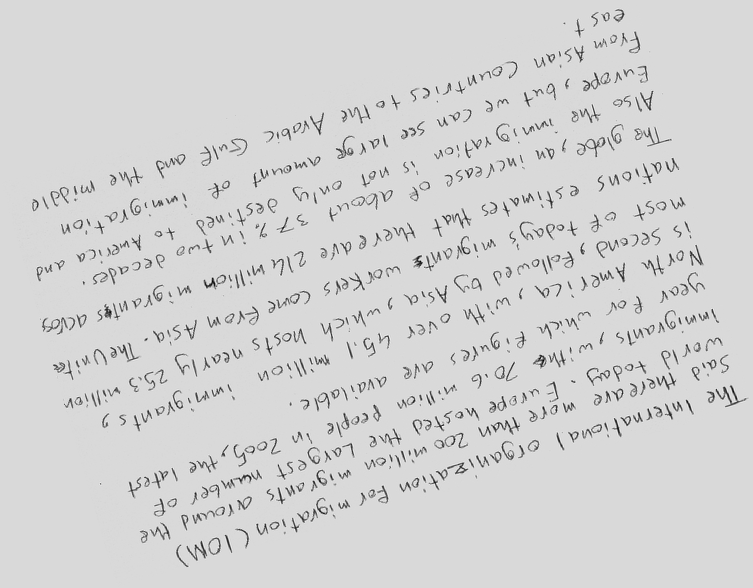 The International organization for migration (IOM)
said there are more than 200 million migrants around the
world today. Europe hosted the Largest number of
immigrants, with 70.6 million people in 2005, the latest
year for which figures are available.
North America, with over 45.1 million immigrants,
is second, followed by Asia, which hosts nearly 25.3 million
most of today's migrants workers come from Asia. The Unite
nations estimates that there are 214 million migrants across
The globe, an increase of about 37% in two decades.
Also the immigration is not only destined to America and
Europe, but we can see large amount of immigration
From Asian countries to the Arabic Gulf and the middle
east.